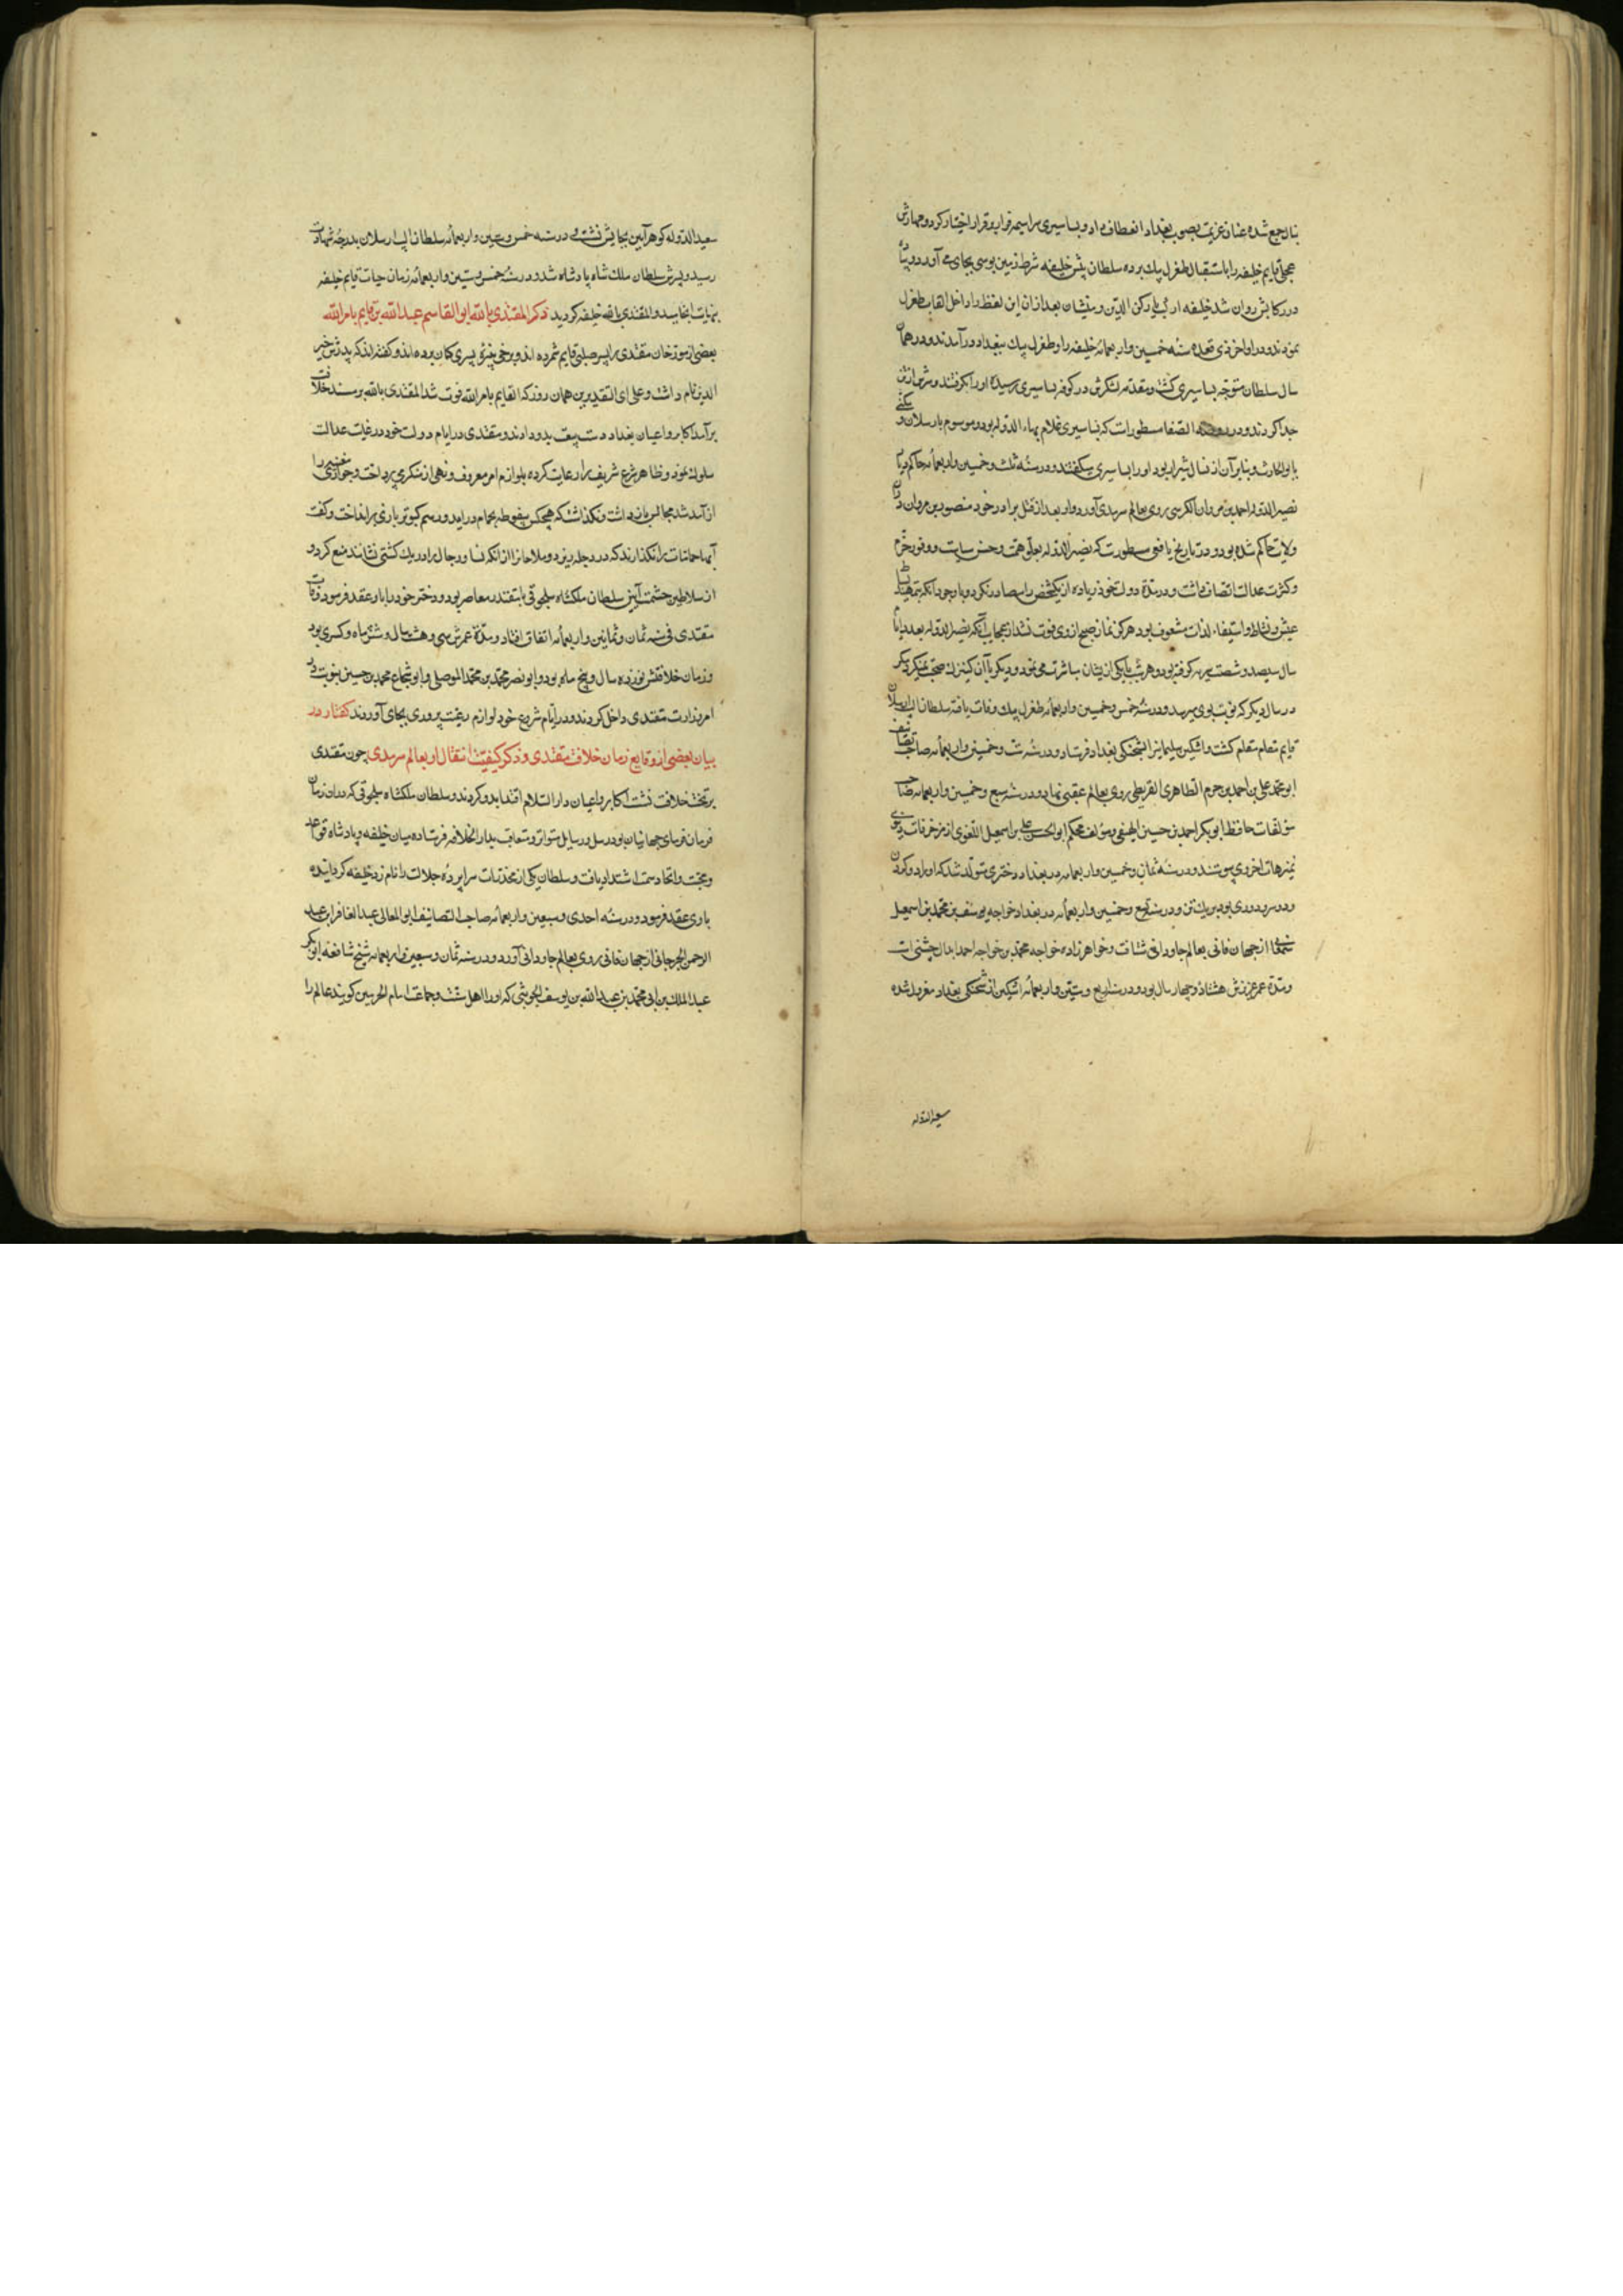 بنا رجیع شده عنان عزیمت بصوب بغداد انعطاف داد و بساسیری سراسیمه فرار بر قرار اختیار کرد و مهارش
عجلی قایم خلیفه را باستقبال طغرل بیک برده سلطان پیش خلیفه شرط زمین بوسی بجای می آورد و پیاده
در رکابش روان شد خلیفه ارکب یا رکن الدین و منشیان بعد از ان این لفظ را داخل القاب طغرل
نمودند و در اواخر ذی قعده سنه خمسین و اربعمائه خلیفه را و طغرل بیک ببغداد در آمدند و در همان
سال سلطان متوجه بساسیری گشت و مقدمه لشکرش در کوفه بساسیری رسیده او را بگرفتند و سرش از تن
جدا کردند و در روضة الصفا مسطورات که بساسیری غلام بهاء الدوله بود و موسوم بارسلان و مکنی
بابو الحارث و بنا بر آن از نسال شیراز بود او را بساسیری میگفتند و در سنه ثلث و خمسین و اربعمائه حاکم دیار
نصیر الدوله احمد بن مروان الکرسی روی بعالم سرمدی آورد و او بعد از قتل برادر خود منصور بن مروان در آن
ولایت حاکم شده بود و در تاریخ یافعی مسطورست که نصیر الدوله بعلو همت و حسن سیاست و وفور حزم
و کثرت عدالت اتصاف داشت و در مدة دولت خود زیاده از یکشخص را مصادره نکرد و با وجود آنکه بتمهید بساط
عیش و نشاط و استیفاء لذات مشعوف بود هرگز نماز صبح از وی فوت نشد از عجایب آنکه نصیر الدوله بعدد ایام
سال سیصد و شصت سریه گرفته بود و هر شب با یکی از ایشان مباشرت می نمود و دیگر با آن کنیزک صحبت نمیکرد مگر
در سال دیگر که نوبت بوی میرسد و در سنه خمس و خمسین و اربعمائه طغرل بیک وفات یافته سلطان الب ارسلان
قایم مقام متقلم گشت و اشکین سلیمانیرا بشحنکی بغداد فرستاد و در سنه ست و خمسین و اربعمائه صاحب تصانیف
ابو محمد علی بن احمد بن حزم الظاهری القرطبی روی بعالم عقبی نهاد و در سنه سبع و خمسین و اربعمائه صاحب
مؤلفات حافظ ابو بکر احمد بن حسین البیهقی و مؤلف محکم ابو الحسن علی بن اسمعیل اللغوی از مزخرفات دنیوی
بنزهات اخروی پیوستند و در سنه ثمان و خمسین و اربعمائه در بغداد دختری متولد شد که او را دو گردن
و دو سر و دو روی بود بر یک تن و در سنه تسع و خمسین و اربعمائه در بغداد خواجه یوسف بن محمد بن اسمعیل
شمعان از جهان فانی بعالم جاودانی شتافت و خواهر زاده خواجه محمد بن خواجه احمد ابدال چشتی است
و مدة عمر عزیزش هشتاد و چهار سال بود و در سنه اربع و ستین و اربعمائه اشکین از شحنکی بغداد معزول شده
سعید الدوله
سعید الدوله کوهر آیین بجایش نشست و در سنه خمس و ستین و اربعمائه سلطان الب ارسلان بدرجه شهادت
رسید و پسرش سلطان ملک شاه پادشاه شد و در سنه خمس و ستین و اربعمائه زمان حیات قایم خلیفه
بنهایت انجامید و المقتدی بالله خلیفه کردید ذکر المقتدی بالله ابو القاسم عبد الله بن قایم بامر الله
بعضی از مورخان مقتدی را پسر صلبی قایم شمرده اند و برخی نبیره پسری کان برده اند و گفته اند که پدرش ذخیرة
الدین نام داشت و علی ای التقدیرین همان روز که القایم بامر الله فوت شد المقتدی بالله بر مسند خلافت
برآمد اکابر و اعیان بغداد دست بیعت بدو دادند و مقتدی در ایام دولت خود در غایت عدالت
سلوک نمود و ظاهر شرع شریف را رعایت کرده بلوازم امر معروف و نهی از منکر می پرداخت و جواری مغنیه را
از آمد شد مجالس باز داشت و نگذاشت که هیچکس بیفوطه بحمام درآید و رسم کبوتر بازی بر انداخت و گفت
آبهاء حمامات را نگذارند که در دجله ریزد و ملاحانرا از آنکه نسا و رجال را در یک کشتی نشانند منع کرد و
از سلاطین حشمت آیین سلطان ملکشاه سلجوقی با مقتدی معاصر بود و دختر خود را با او عقد فرمود وفات
مقتدی فی سنه ثمان و ثمانین و اربعمائه اتفاق افتاد و مدة عمرش سی و هشت سال و شش ماه و کسری بود
و زمان خلافتش نوزده سال و پنج ماه بود و ابو نصر محمد بن محمد الموصلی و ابو شجاع محمد بن حسین بنوبت در
امر وزارت مقتدی داخل کردند و در ایام شروع خود لوازم رعیت پروری بجای آوردند گفتار در
بیان بعضی از وقایع زمان خلافت مقتدی و ذکر کیفیت انتقال او بعالم سرمدی چون مقتدی
بر تخت خلافت نشست اکابر و اعیان دار السلام اقتدا بدو کردند و سلطان ملکشاه سلجوقی که در ان زمان
فرمان فرمای جهانیان بود رسل و رسایل متواتر و متعاقب بدار الخلافه فرستاده میان خلیفه و پادشاه قواعد
و محبت و اتحاد سمت اشتداد یافت و سلطان یکی از مخدرات سراپرده جلالت را نام زد خلیفه کردانیده
با وی عقد فرمود و در سنه احدی و سبعین و اربعمائه صاحب التصانیف ابو المعالی عبد الغافر ابن عبد
الرحمن الجرجانی از جهان فانی روی بعالم جاودانی آورد و در سنه ثمان و سبعین و اربعمائه شیخ شافعه ابو بکر
عبد الملک بن ابی محمد بن عبد الله بن یوسف الجوینی که او را اهل سنت و جماعت امام الحرمین کویند عالم را